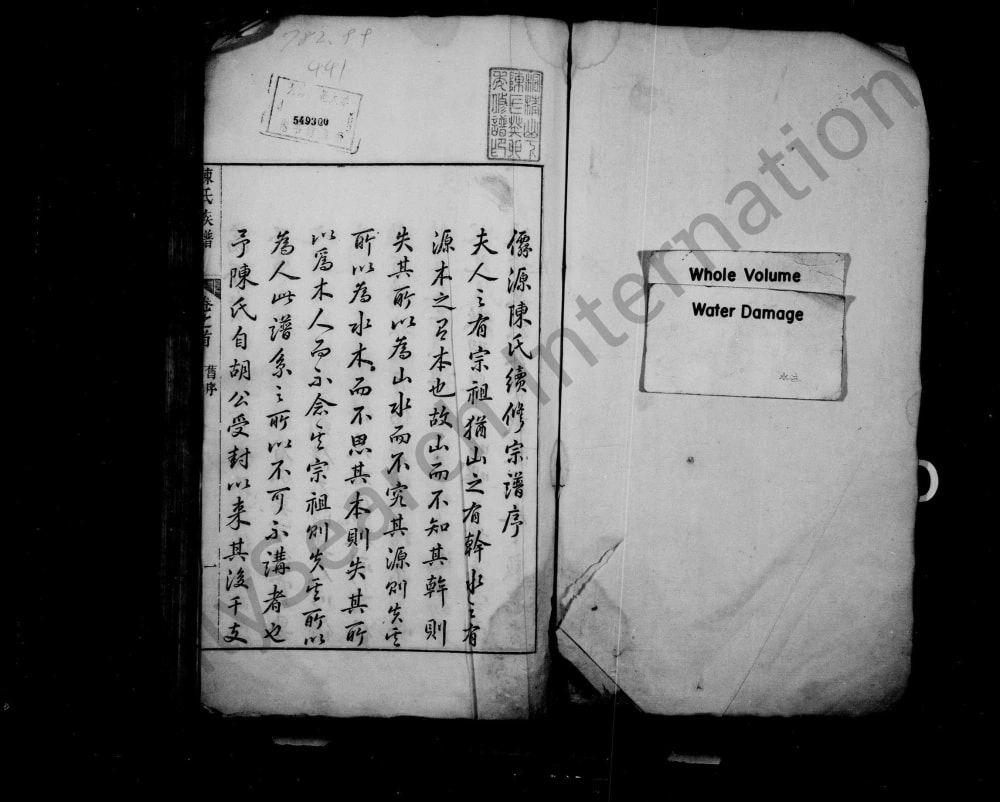 782.99
441
549300
儒源陳氏續修宗譜序
夫人之有宗祖猶山之有幹水之有
源木之有本也故山而不知其幹則
失其所以為山水而不究其源則失其
所以為水木而不思其本則失其所
以為木人而不念其宗祖則失其所以
為人此譜系之所以不可不講者也
予陳氏自胡公受封以来其後千支
陳氏族譜
卷之首
舊序
一
Whole Volume
Water Damage
ysearch International